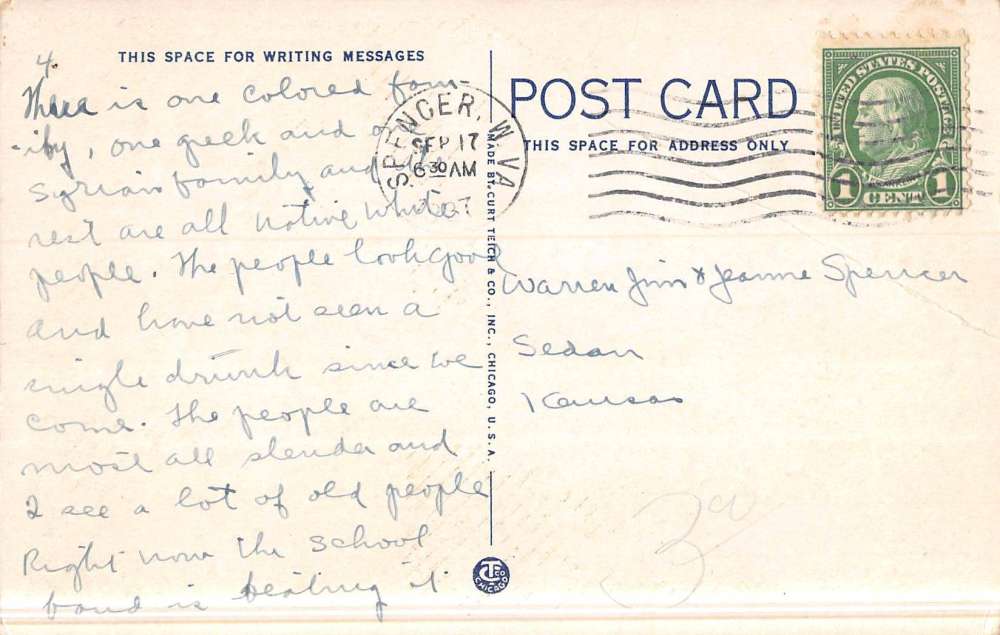 THIS SPACE FOR WRITING MESSAGES
4.
There is one colored fam-
-ily, one greek and a
Syrian family and the
rest are all native white
people. The people look good
and have not seen a
single drunk since we
come. The people are
most all slender and
I see a lot of old people
Right now the school
band is beating it
SPENCER, W.VA.
SEP 17
6 30 AM
MADE BY CURT TEICH & CO., INC., CHICAGO, U.S.A.
CT CO
CHICAGO
POST CARD
THIS SPACE FOR ADDRESS ONLY
UNITED STATES POSTAGE
1 CENT 1
Warren Jim & Jeanne Spencer
Sedan
Kansas